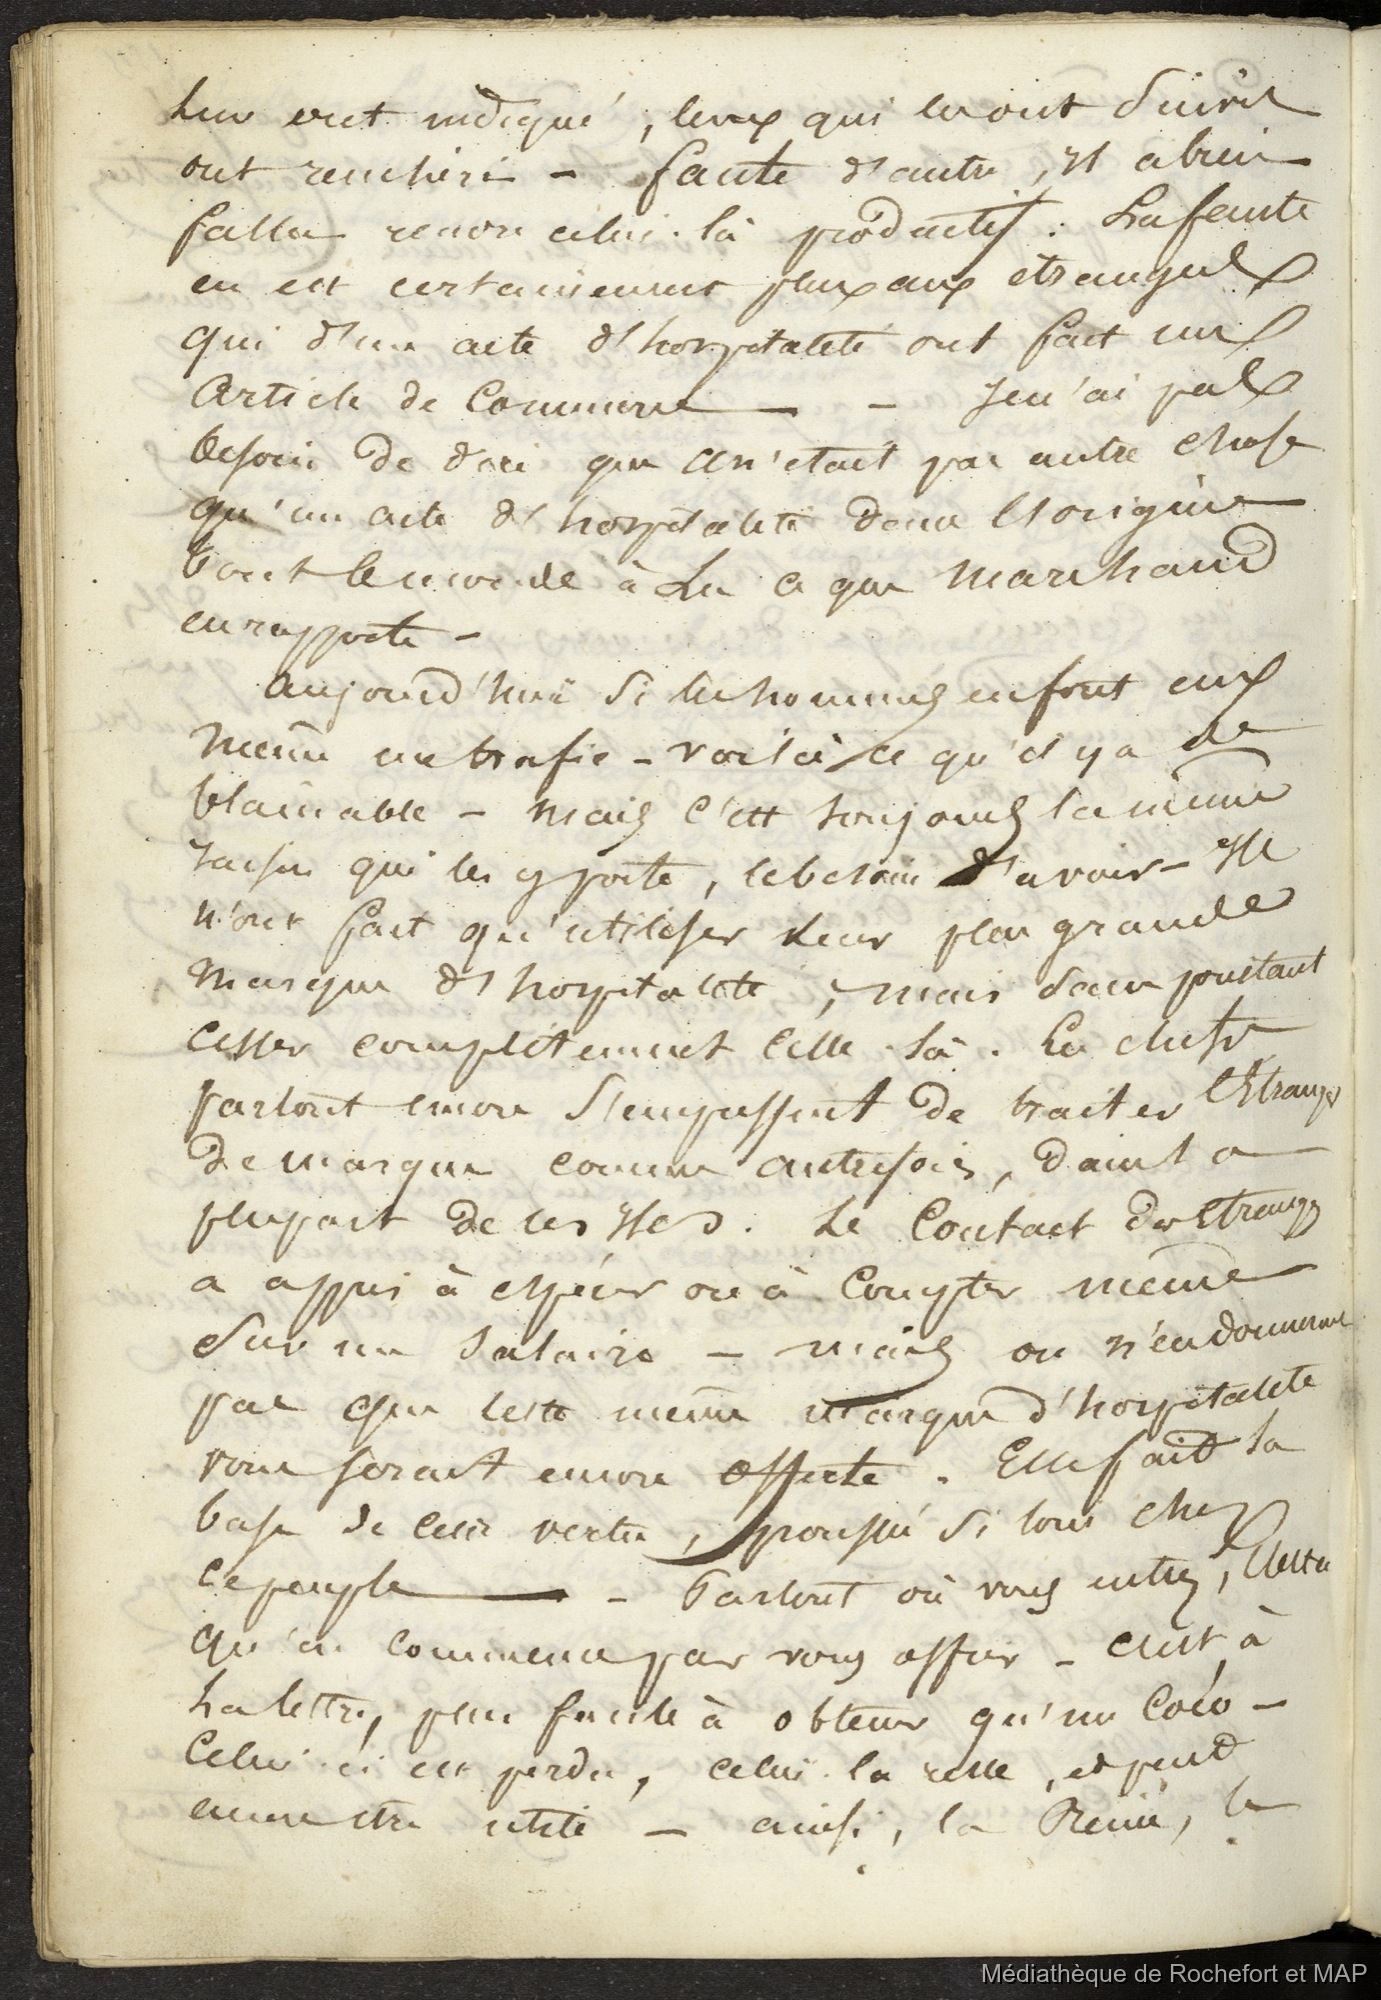 leur ont indiqué, ceux qui les ont suivis
ont renchéri - faute d'autre, il a bien
fallu rendre celui-là productif. La faute
en est certainement plus aux étrangers
qui d'un acte d'hospitalité ont fait un
article de commerce - Je n'ai pas
besoin de dire que ce n'était pas autre chose
qu'un acte d'hospitalité dans l'origine
tout le monde à lu ce que Marchand
en rapporte -
aujourd'hui si les hommes en font eux
même un trafic - voilà ce qu'il y a de
blamable - mais c'est toujours la même
raison qui les y porte, le besoin d'avoir - Ils
n'ont fait qu'utiliser leur plus grande
marque d'hospitalité, mais sans pourtant
cesser complètement celle-là. Les chefs
partout encore s'empressent de traiter l'étranger
de marque comme autrefois, dans la
plupart de ces Iles. Le contact des étrangers
a appris à espérer ou à compter même
sur un salaire - mais on n'en donnerait
pas que cette même marque d'hospitalité
vous serait encore offerte. Elle fait la
base de cette vertu, poussée si loin chez
ce peuple - Partout où vous entrez, c'est ce
qu'on commence par vous offrir - c'est à
la lettre, plus facile à obtenir qu'un Coco -
Celui-ci est perdu, celui-là reste, et peut
encore être utile - ainsi, la Reine, le
Médiathèque de Rochefort et MAP